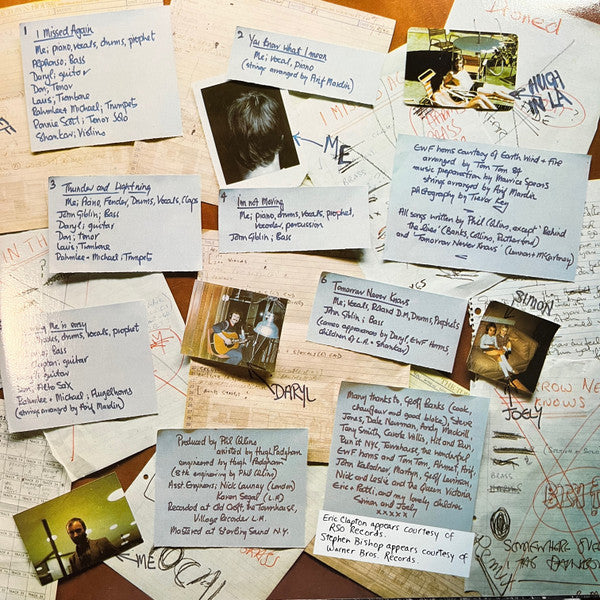 1 I Missed Again
Me; piano, vocals, drums, prophet
Alphonso; Bass
Daryl; guitar
Don; Tenor
Louis; Trombone
Rahmlee + Michael; Trumpets
Ronnie Scott; Tenor Solo
Shankar; Violins
2 You Know What I mean
Me; Vocal, piano
(strings arranged by Arif Mardin)
HUGH
IN LA
ME
3 Thunder and Lightning
Me; Piano, Fender, Drums, Vocals, Claps
John Giblin; Bass
Daryl; guitar
Don; tenor
Louis; Trombone
Rahmlee + Michael; Trumpets
4 I'm not Moving
Me; piano, drums, vocals, prophet,
vocoder, percussion
John Giblin; Bass
EWF horns courtesy of Earth Wind + Fire
arranged by Tom Tom 84
music preparation by Maurice Spears
strings arranged by Arif Mardin
photography by Trevor Key
All songs written by Phil Collins, except 'Behind
the Lines' (Banks, Collins, Rutherford)
and 'Tomorrow Never Knows' (Lennon McCartney)
Me is easy
vocals, prophet
Bass
Clapton; guitar
guitar
Don; Alto Sax
Rahmlee + Michael; Flugelhorns
(strings arranged by Arif Mardin)
DARYL
6 Tomorrow Never Knows
Me; Vocals, Roland D.M, Drums, Prophets
John Giblin; Bass
(cameo appearances by Daryl, EWF Horns,
children of L.A. + Shankar)
SIMON
JOELY
Produced by Phil Collins
assisted by Hugh Padgham
engineered by Hugh "Padgham"
(8th engineering by Phil Collins)
Asst. Engineers; Nick Launay (London)
Karen Siegel (L.A)
Recorded at Old Croft, the Townhouse,
Village Recorder L.A.
Mastered at Sterling Sound N.Y.
Many thanks to, Geoff Banks (cook,
chauffeur and good bloke), Steve
Jones, Dale Newman, Andy Mackrill,
Tony Smith, Carole Willis, Hit and Run,
Run it NYC, Townhouse, the wonderful
EWF horns and Tom Tom, Ahmet, Arif,
John Kalodner, Martyn, Geoff Lawson,
Nick and Leslie and the Queen Victoria,
Eric + Patti, and my lovely children
Simon and Joely
xxxxx
Eric Clapton appears courtesy of
RSO Records.
Stephen Bishop appears courtesy of
Warner Bros. Records.
ME